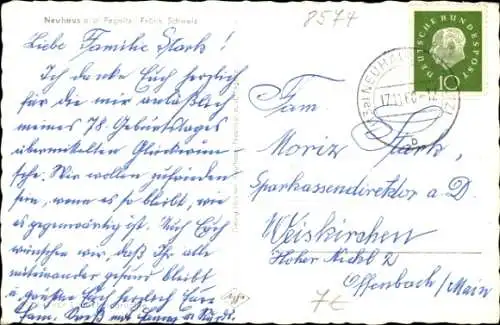 Neuhaus a. d. Pegnitz, Fränk. Schweiz
8574
Liebe Familie Stark!
Ich danke Euch herzlich
für die mir anläßlich
meines 78. Geburtstages
übermittelten Glückwün-
sche. Wir wollen zufrieden
sein, wenn es so bleibt, wie
es gegenwärtig ist. Auch Euch
wünschen wir, daß Ihr alle
miteinander gesund bleibt
u. grüßen Euch herzlich Eure
Fam.
DEUTSCHE BUNDESPOST
10
NEUHAUS
17.11.60-12
b
Fam.
Moriz Stark,
Sparkassendirektor a. D.
Weiskirchen
Hoher Nickl 2
Offenbach/Main
7€